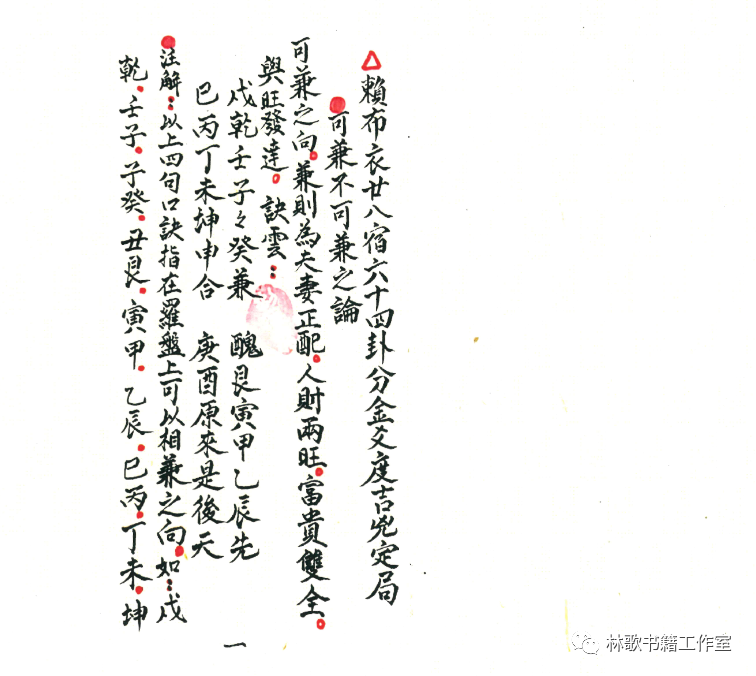 △賴布衣廿八宿六十四卦分金爻度吉兇定局
●可兼不可兼之論
可兼之向。兼則為夫妻正配。人財兩旺。富貴雙全。
與旺發達。訣雲：
戌乾壬子々癸兼　醜艮寅甲乙辰先
巳丙丁未坤申合　庚酉原來是後天
●注解：以上四句口訣指在羅盤上可以相兼之向。如：戌
乾.壬子.子癸.丑艮.寅甲.乙辰.巳丙.丁未.坤
一
林歌书籍工作室